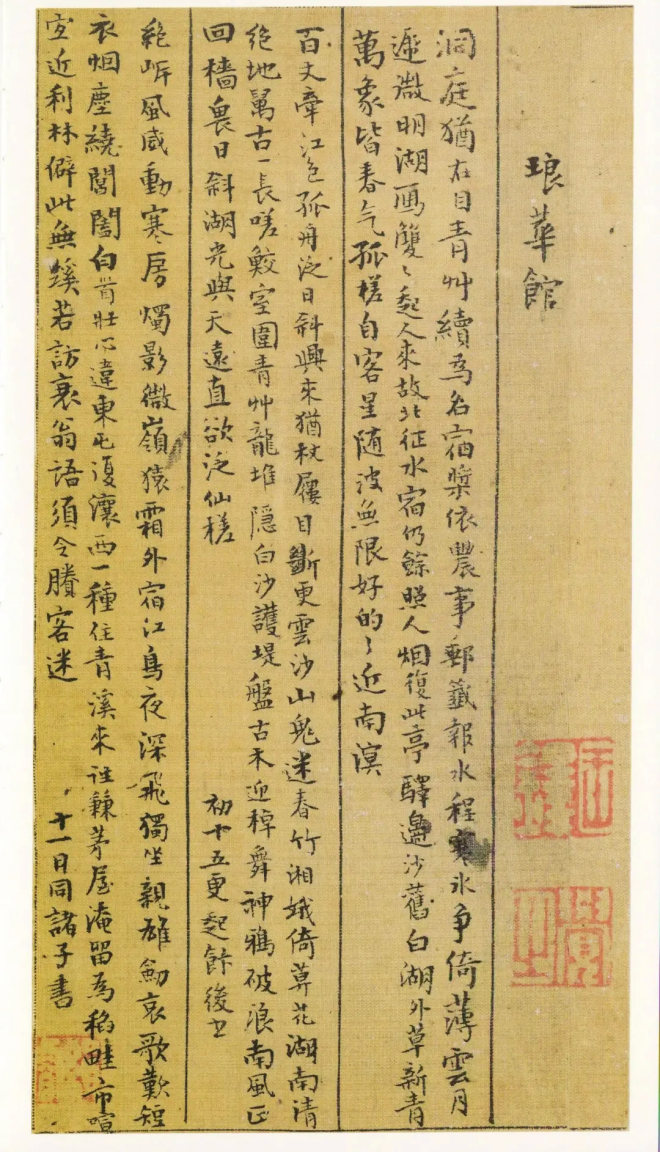 琅華館
洞庭猶在目青艸續為名宿槳依農事郵籤報水程寒氷争倚薄雲月
遞微明湖鴈雙〻起人來故北征水宿仍餘照人烟復此亭驛邊沙舊白湖外草新青
萬象皆春气孤槎自客星随波無限好的〻近南溟
百丈牽江色孤舟泛日斜興來猶杖屨目斷更雲沙山鬼迷春竹湘娥倚莫花湖南清
絶地萬古一長嗟鮫室圍青艸龍堆隠白沙護堤盤古木迎棹舞神鴉破浪南風正
回檣畏日斜湖光與天遠直欲泛仙槎 初十五更起餘後書
絶岍風威動寒房燭影微嶺猿霜外宿江鳥夜深飛獨坐親雄劒哀歌歎短
衣烟塵繞閶闔白首壯心違東屯復瀼西一種住青溪來往兼茅屋淹留為稻畦市喧
宜近利林僻此無蹊若訪衰翁語須令賸客迷 十一日同諸子書